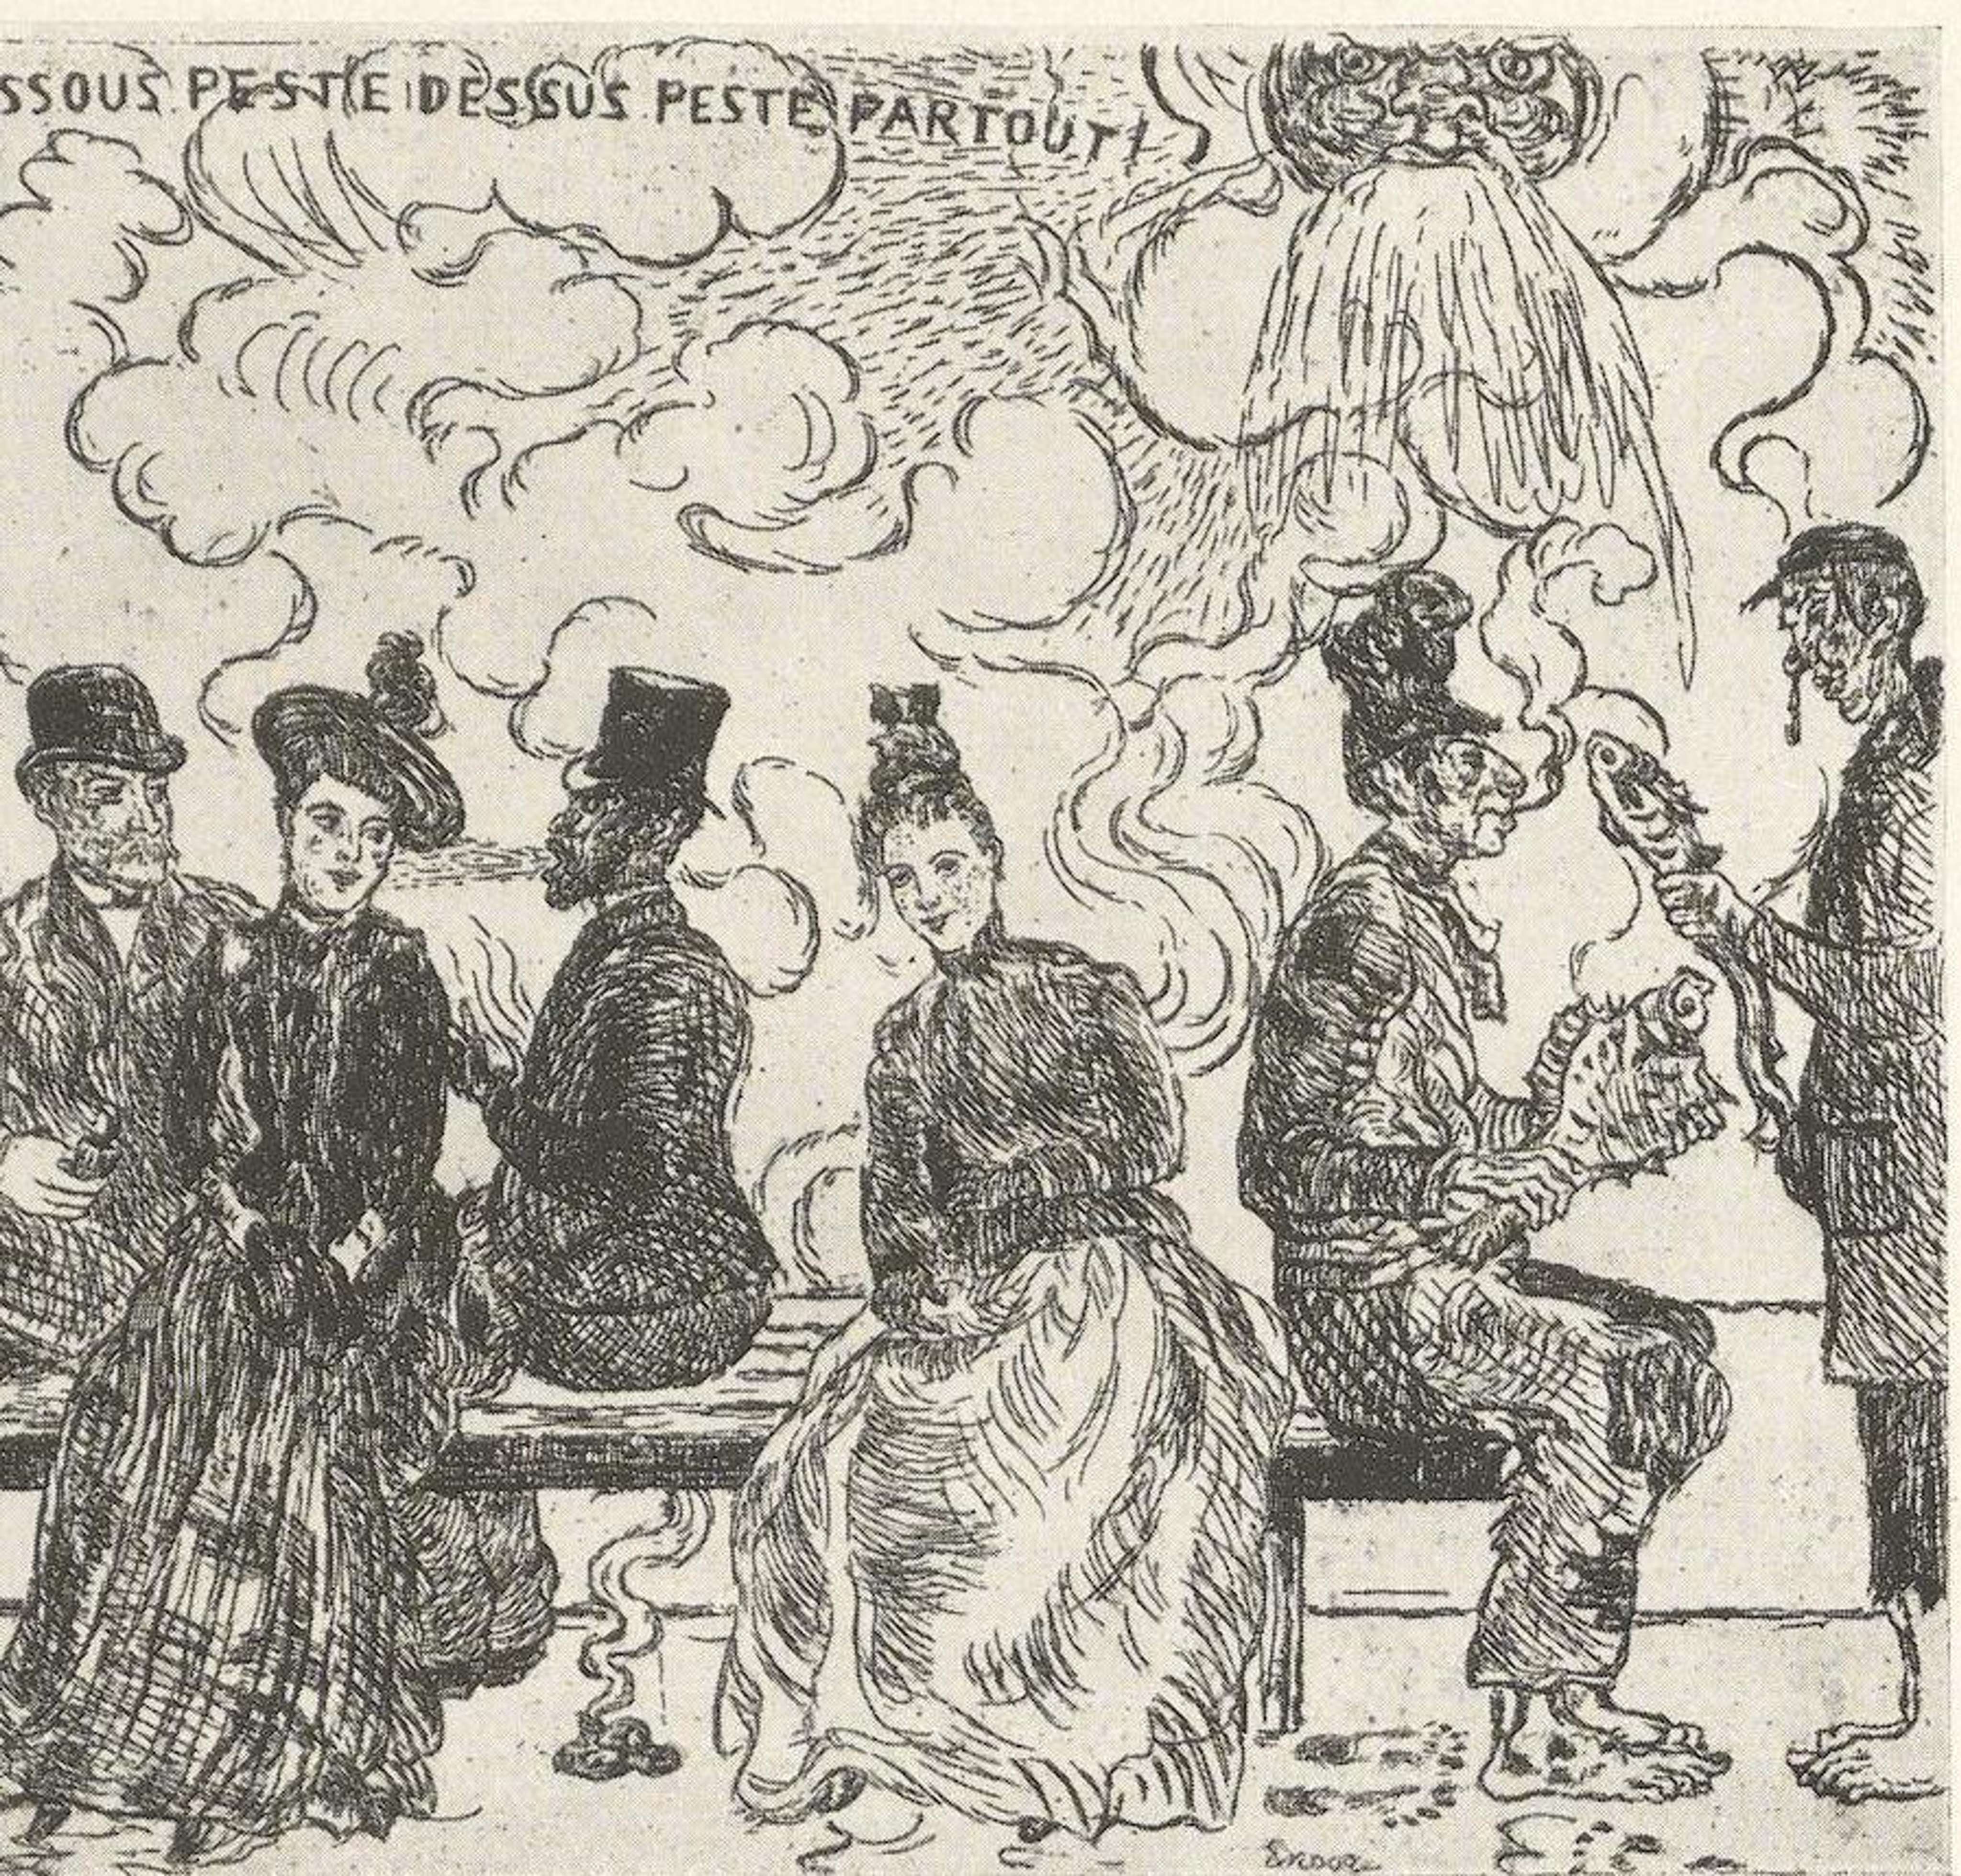 SSOUS PESTE DESSUS PESTE PARTOUT!
Ensor